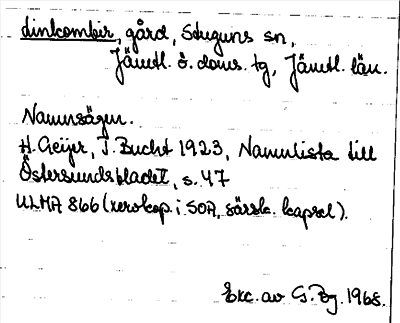 dinkombir, gård, Stuguns sn,
Jämtl. ö. doms. tg, Jämtl. län.
Namnsägen.
H. Geijer, J. Bucht 1923, Namnlista till
Östersundsbladet, s. 47
ULMA 866 (xerokop. i SOA, särsk. kapsel).
Exc. av G. Bg. 1968.